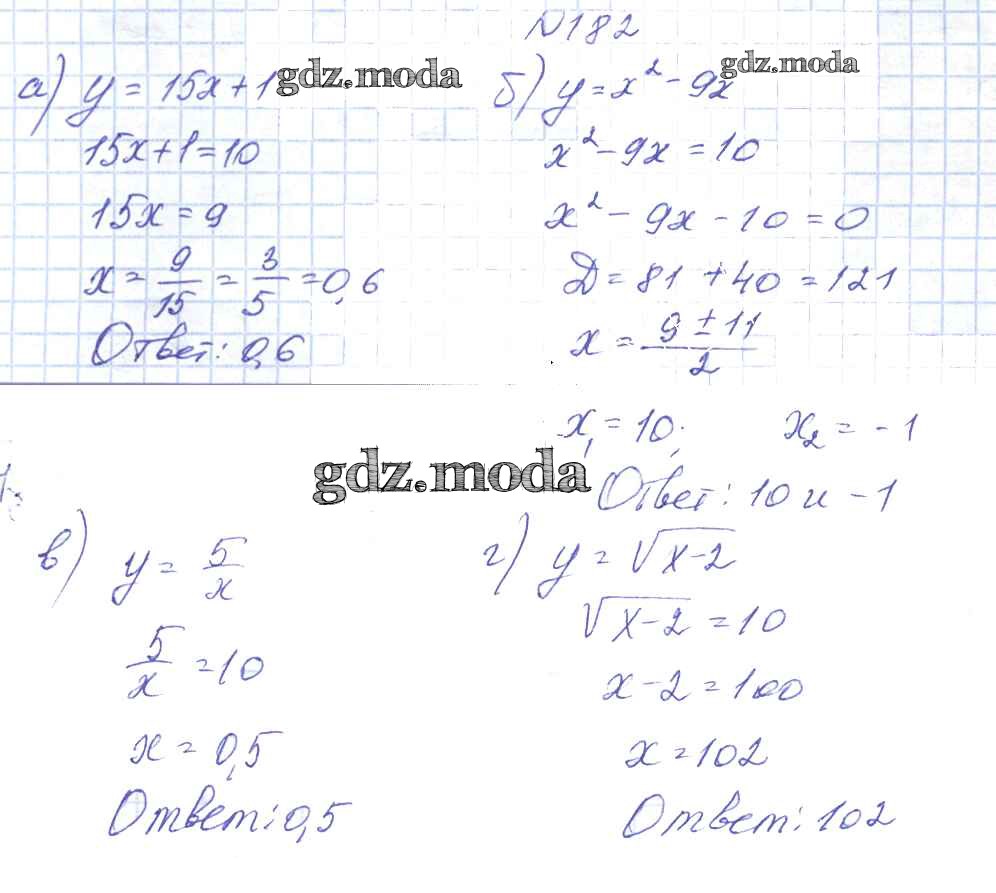 №182
а) y = 15x + 1
15x + 1 = 10
15x = 9
x = 9/15 = 3/5 = 0,6
Ответ: 0,6
gdz.moda
б) y = x² - 9x
gdz.moda
x² - 9x = 10
x² - 9x - 10 = 0
Д = 81 + 40 = 121
x = (9 ± 11)/2
x₁ = 10; x₂ = -1
Ответ: 10 и -1
gdz.moda
в) y = 5/x
5/x = 10
x = 0,5
Ответ: 0,5
г) y = √(x-2)
√(x-2) = 10
x - 2 = 100
x = 102
Ответ: 102